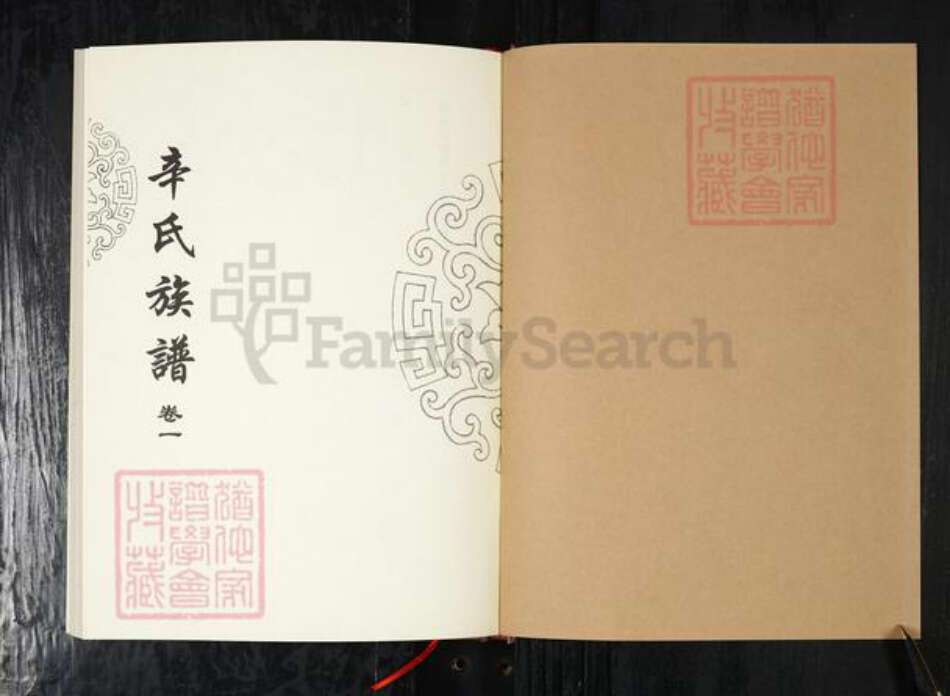 猶他家
譜學會
收藏
辛氏族譜
卷一
FamilySearch
猶他家
譜學會
收藏